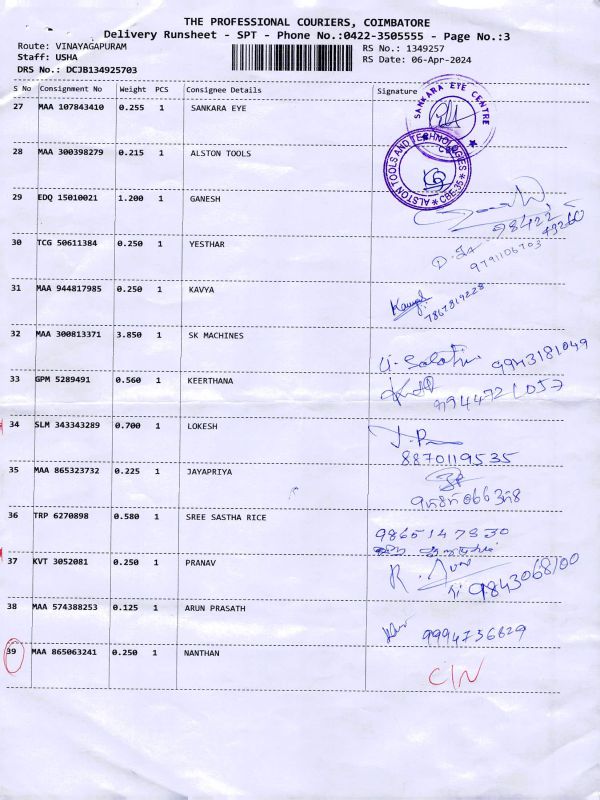 THE PROFESSIONAL COURIERS, COIMBATORE
Delivery Runsheet - SPT - Phone No.:0422-3505555 - Page No.:3
Route: VINAYAGAPURAM RS No.: 1349257
Staff: USHA RS Date: 06-Apr-2024
DRS No.: DCJB134925703
S No Consignment No Weight PCS Consignee Details Signature
27 MAA 107843410 0.255 1 SANKARA EYE
SANKARA EYE CENTRE
28 MAA 300398279 0.215 1 ALSTON TOOLS
ALSTON TOOLS AND TECHNOLOGIES
CBE-35
29 EDQ 15010021 1.200 1 GANESH
98422
49260
30 TCG 50611384 0.250 1 YESTHAR
9791106703
31 MAA 944817985 0.250 1 KAVYA
7867819228
32 MAA 300813371 3.850 1 SK MACHINES
9943181049
33 GPM 5289491 0.560 1 KEERTHANA
9944721057
34 SLM 343343289 0.700 1 LOKESH
8870119535
35 MAA 865323732 0.225 1 JAYAPRIYA
36 TRP 6270898 0.580 1 SREE SASTHA RICE
9865147330
37 KVT 3052081 0.250 1 PRANAV
9843068100
38 MAA 574388253 0.125 1 ARUN PRASATH
9994736629
39 MAA 865063241 0.250 1 NANTHAN
CIN